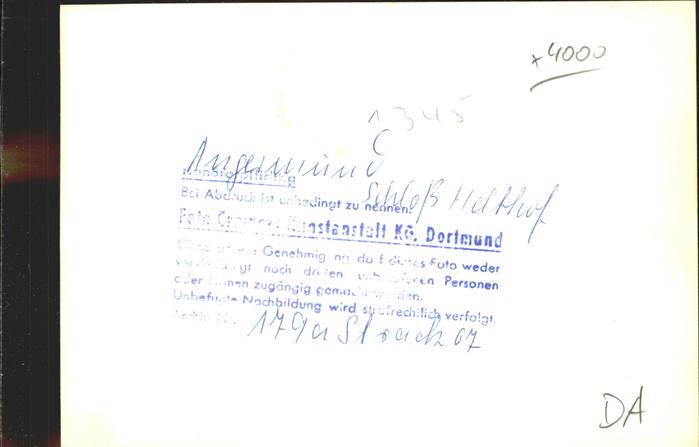 +4000
1345
Angermund
Honorarpflichtig
Schloß Helthof
Bei Abdruck ist unbedingt zu nennen:
Foto Kunstanstalt KG. Dortmund
Ohne unsere Genehmigung darf dieses Foto weder
vervielfältigt noch dritten unberufenen Personen
oder Firmen zugängig gemacht werden.
Unbefugte Nachbildung wird strafrechtlich verfolgt.
Archiv Nr. 179a Strack 07
DA